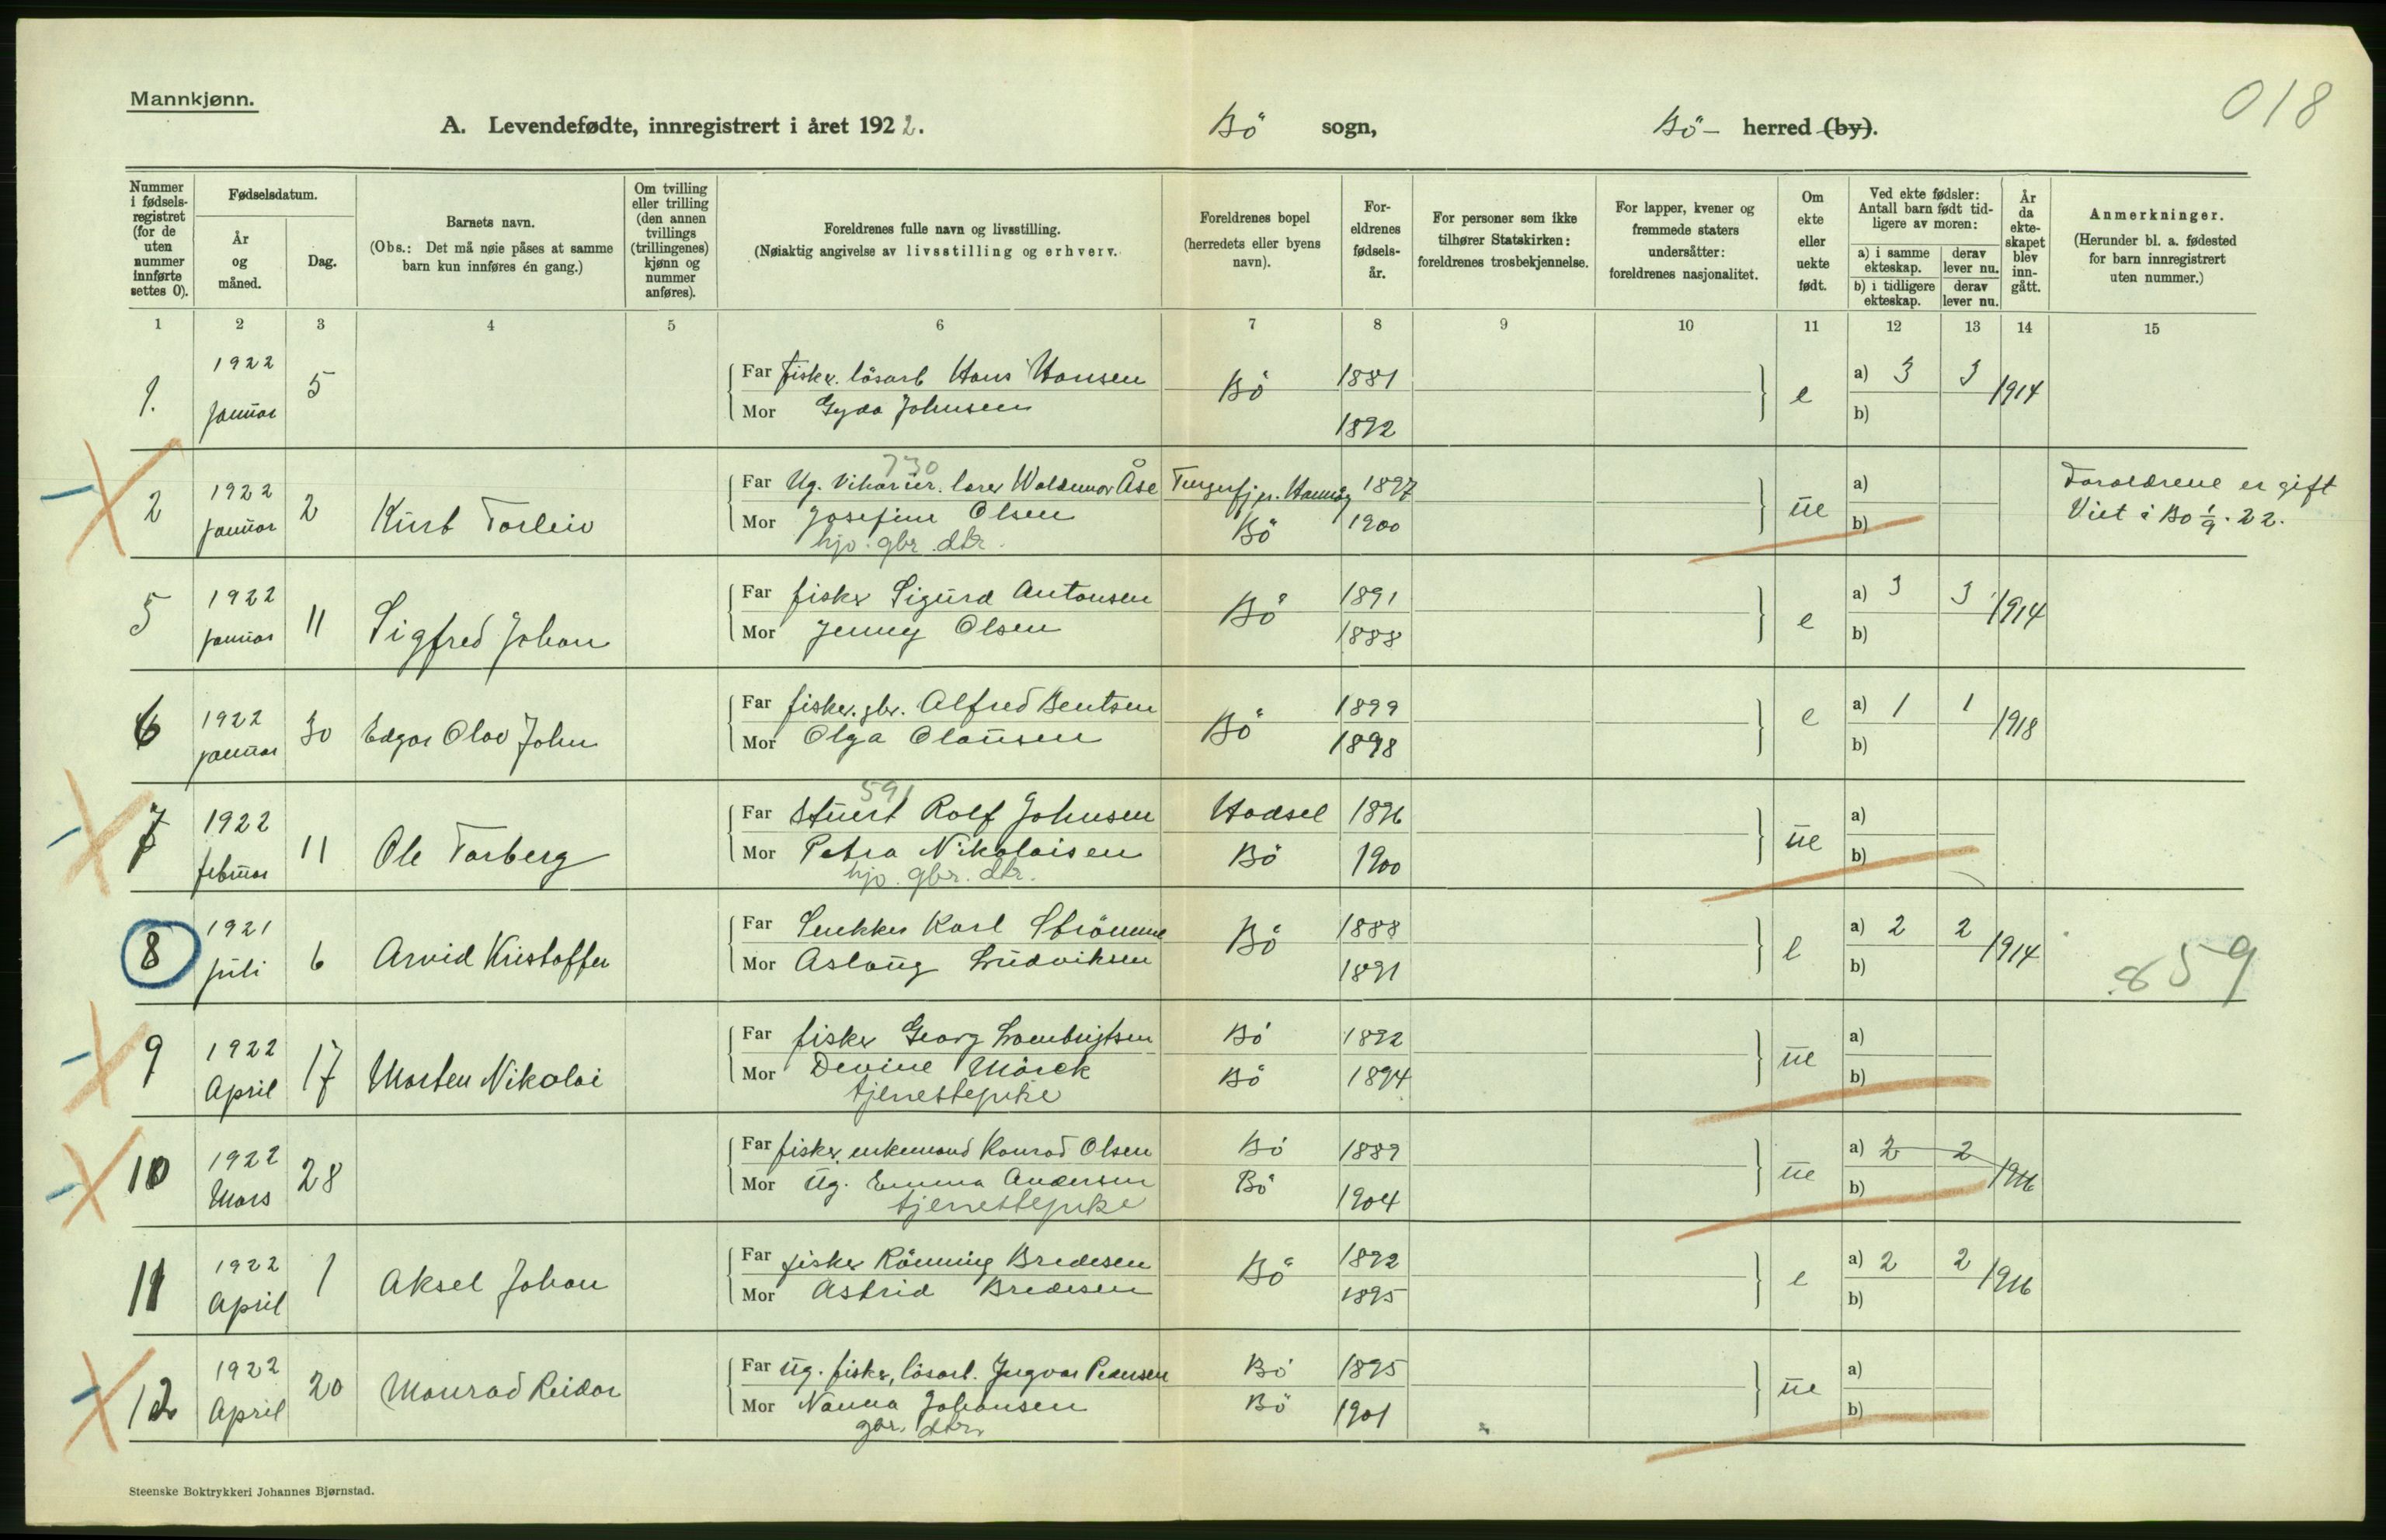 Mannkjønn.
018
A. Levendefødte, innregistrert i året 1922. Bö sogn, Bö – herred (by).
Nummer i fødselsregistret (for de uten nummer innførte settes 0).
Fødselsdatum.
År og måned.
Dag.
Barnets navn.
(Obs.: Det må nøie påses at samme barn kun innføres én gang.)
Om tvilling eller trilling (den annen tvillings (trillingenes) kjønn og nummer anføres).
Foreldrenes fulle navn og livsstilling.
(Nøiaktig angivelse av livsstilling og erhverv.
Foreldrenes bopel (herredets eller byens navn).
For-eldrenes fødsels-år.
For personer som ikke tilhører Statskirken: foreldrenes trosbekjennelse.
For lapper, kvener og fremmede staters undersåtter: foreldrenes nasjonalitet.
Om ekte eller uekte født.
Ved ekte fødsler: Antall barn født tidligere av moren:
a) i samme ekteskap. derav lever nu.
b) i tidligere ekteskap. derav lever nu.
År da ekteskapet blev inngått.
Anmerkninger.
(Herunder bl. a. fødested for barn innregistrert uten nummer.)
1 2 3 4 5 6 7 8 9 10 11 12 13 14 15
1. 1922 januar 5 Far fisker. lösarb Hans Hansen Bö 1881 e a) 3 3 1914
Mor Gyda Johnsen 1892 b)
730
2 1922 januar 2 Kurt Torleiv Far Ug. lærer Waldemar Åse 1897 ue a) Foræld­rene er gift
Mor Josefine Olsen Bö 1900 b) Viet i Bö 1/9. 22.
hjv. gbr. dtr.
5 1922 januar 11 Sigfred Johan Far fisker Sigurd Antonsen Bö 1891 e a) 3 3 1914
Mor Jenny Olsen 1888 b)
6 1922 januar 30 Edgar Olav John Far fisker. gbr. Alfred Bentsen Bö 1899 e a) 1 1 1918
Mor Olga Olausen 1898 b)
591
7 1922 februar 11 Ole Torberg Far Stuert Rolf Johnsen Hadsel 1896 ue a)
Mor Petra Nikolaisen Bö 1900 b)
hjv. gbr. dtr.
8 1921 juli 6 Arvid Kristoffer Far Snekker Karl Strömme Bö 1888 e a) 2 2 1914
Mor Aslaug Ludviksen 1891 b) 859
9 1922 April 17 Morten Nikolai Far fisker Georg Lambrigtsen Bö 1892 ue a)
Mor Devine Mörck Bö 1894 b)
tjenestepike
10 1922 Mars 28 Far fisker, enkemand Konrad Olsen Bö 1889 ue a) 2 2 1916
Mor ug. Emma Andersen Bö 1904 b)
tjenestepike
11 1922 April 1 Aksel Johan Far fisker Rönning Bredesen Bö 1892 e a) 2 2 1916
Mor Astrid Bredesen 1895 b)
12 1922 April 20 Monrad Reidar Far ug. fisker, lösarb. Ingvar Pedersen Bö 1895 ue a)
Mor Nanna Johansen Bö 1901 b)
gbr. dtr.
Steenske Boktrykkeri Johannes Bjørnstad.